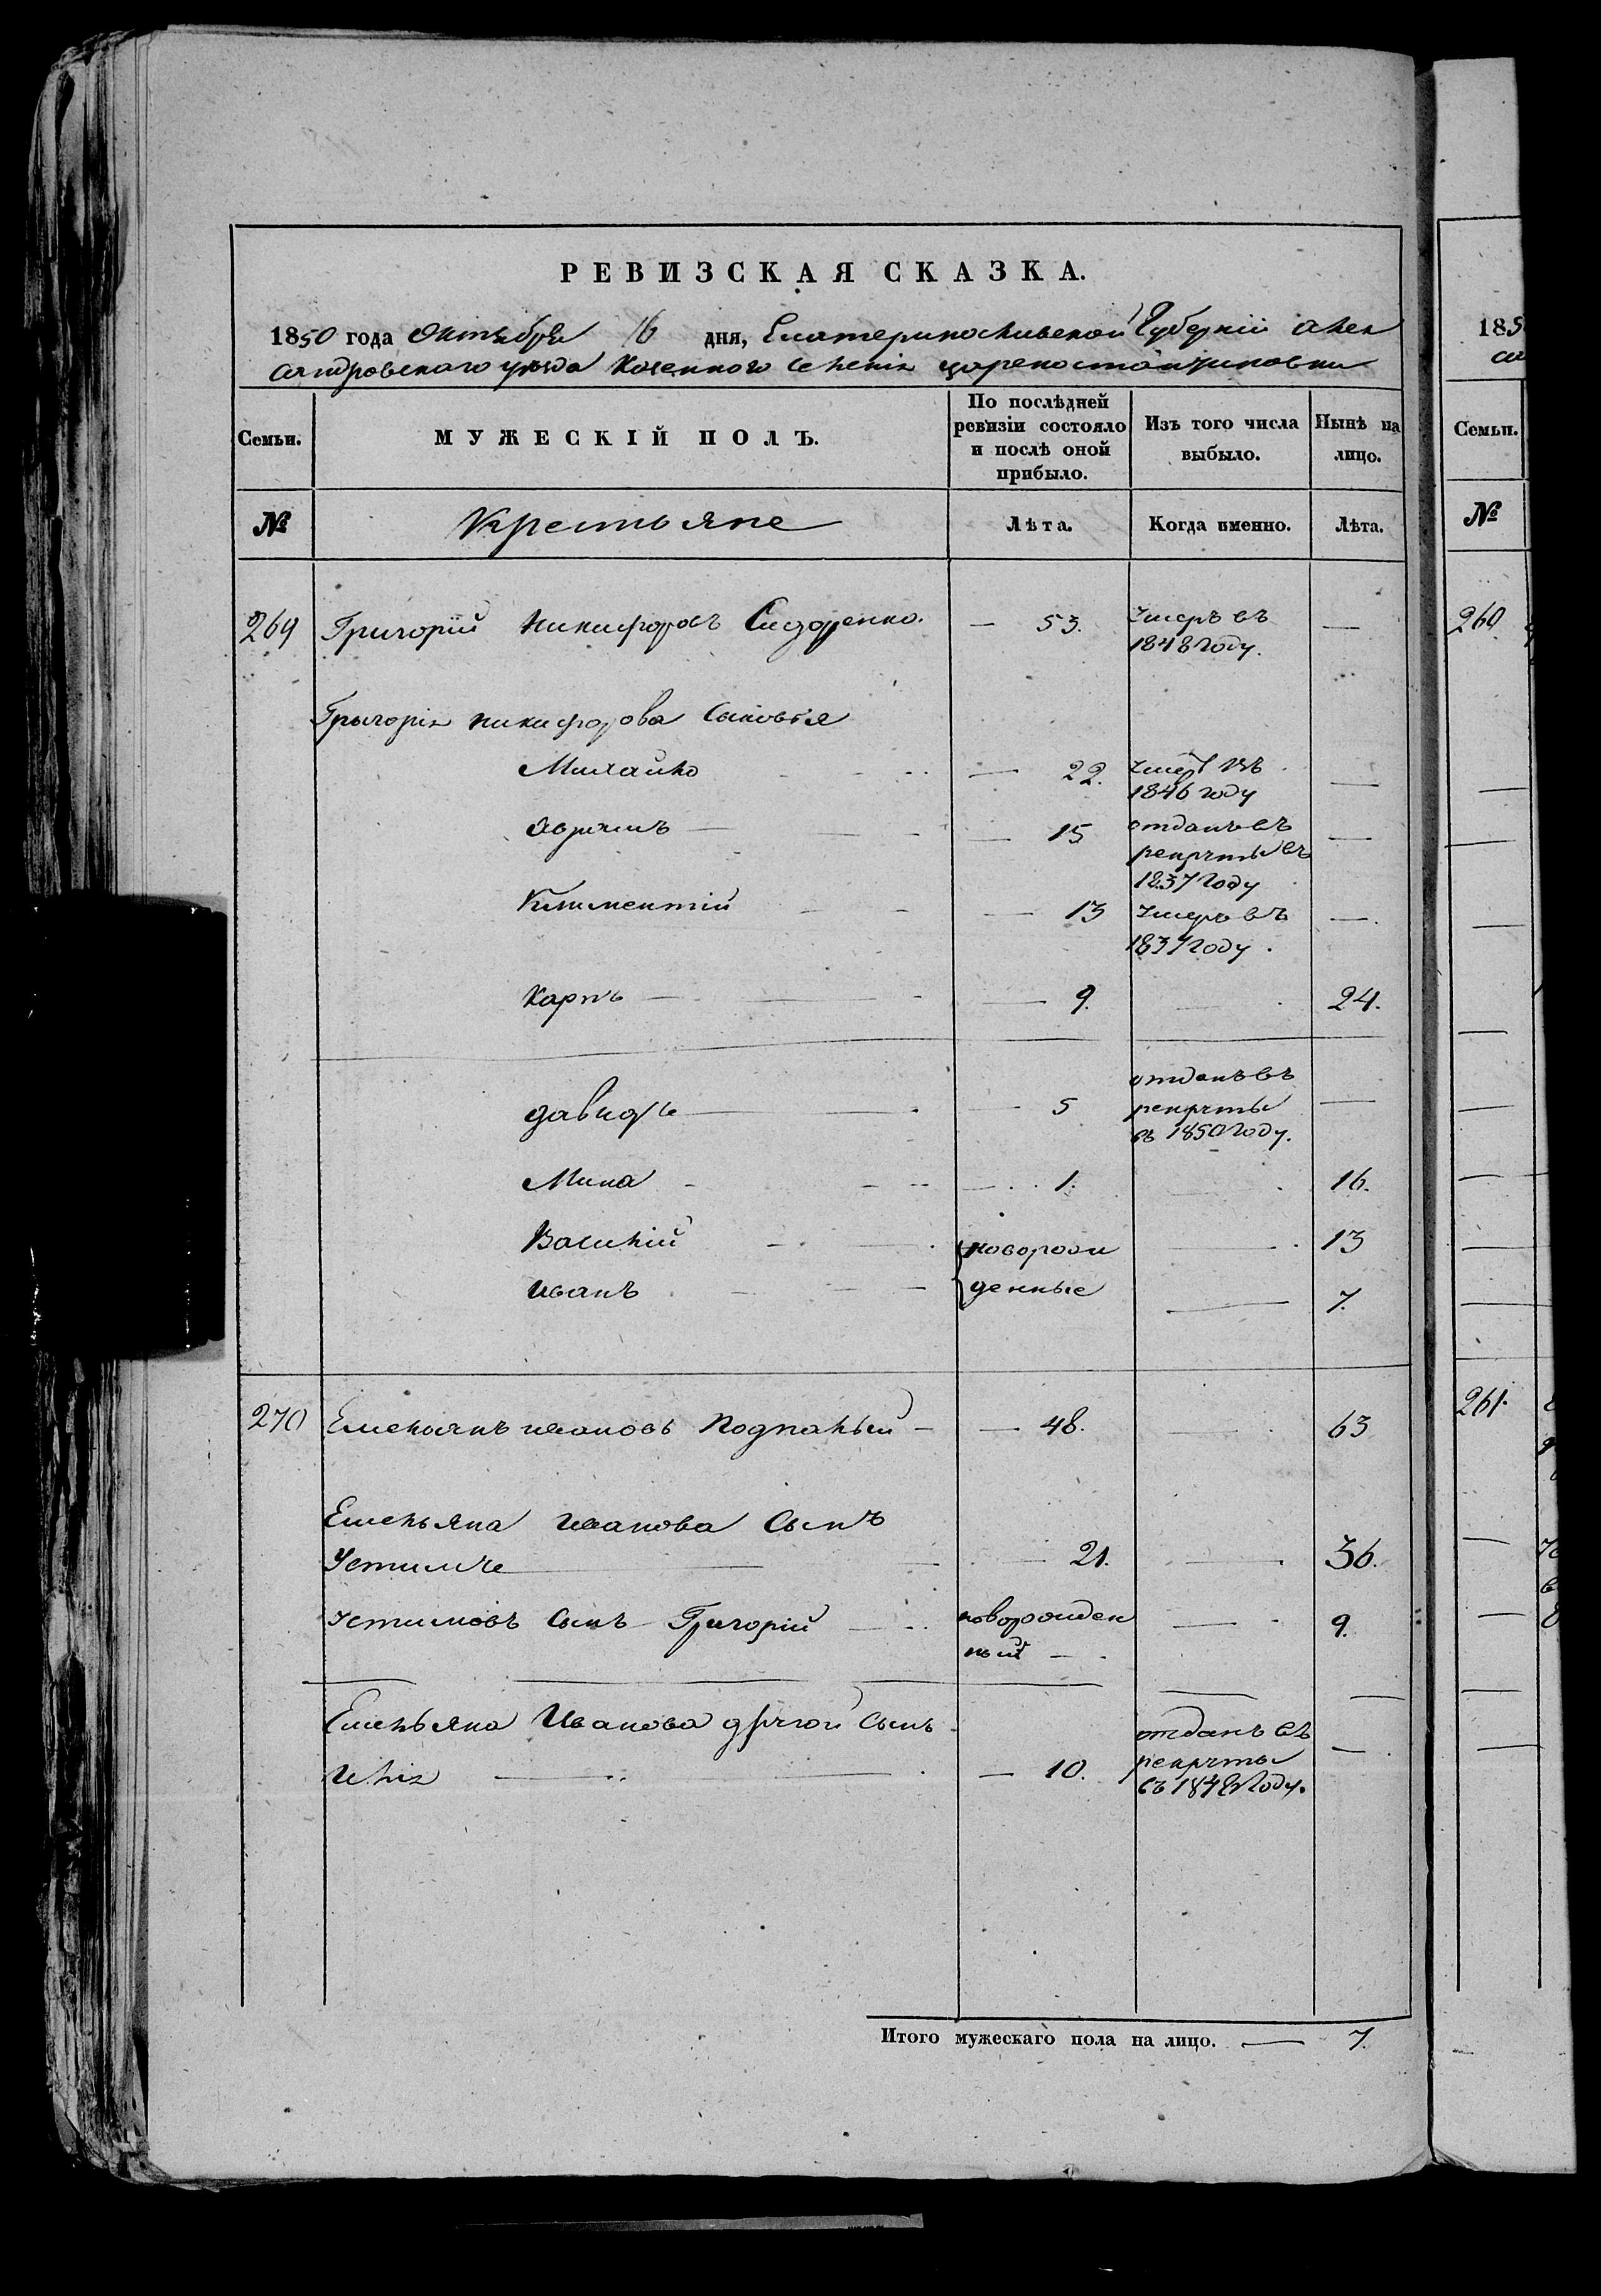 РЕВИЗСКАЯ СКАЗКА.
1850 года Октября 16 дня, Екатеринославской Губерніи Алек
сандровскаго уезда Казенного Селенія Цареконстантиновки
Семьи.
МУЖЕСКІЙ ПОЛЪ.
По послѣдней ревизіи состояло и послѣ оной прибыло.
Изъ того числа выбыло.
Нынѣ на лицо.
№
Крестьяне
Лѣта.
Когда именно.
Лѣта.
269 Григорій Никифоровъ Сидоренко. — 53. Умеръ въ —
1848 Году.
Григорія Никифорова Сыновья
Михайло — 22. Умеръ въ —
1846 году
Аврамъ — 15 отданъ въ —
рекруты въ
1837 Году
Климентій — 13 Умеръ въ —
1837 Году.
Карпъ — 9. — 24.
Давидъ — 5 отданъ въ —
рекруты
въ 1850 Году.
Мина — 1. — 16.
Василій — новорож — 13
Иванъ — денные — 7.
270 Емельянъ Ивановъ Подпалый — 48. — 63
Емельяна Иванова Сынъ
Устимъ — 21. — 36.
Устимовъ Сынъ Григорій — новорожден — 9.
ный —
Емельяна Иванова другой Сынъ отданъ въ
Илія — 10. рекруты —
въ 1848 Году.
Итого мужескаго пола на лицо. — 7.
185
са
Семьи.
№
260
261.